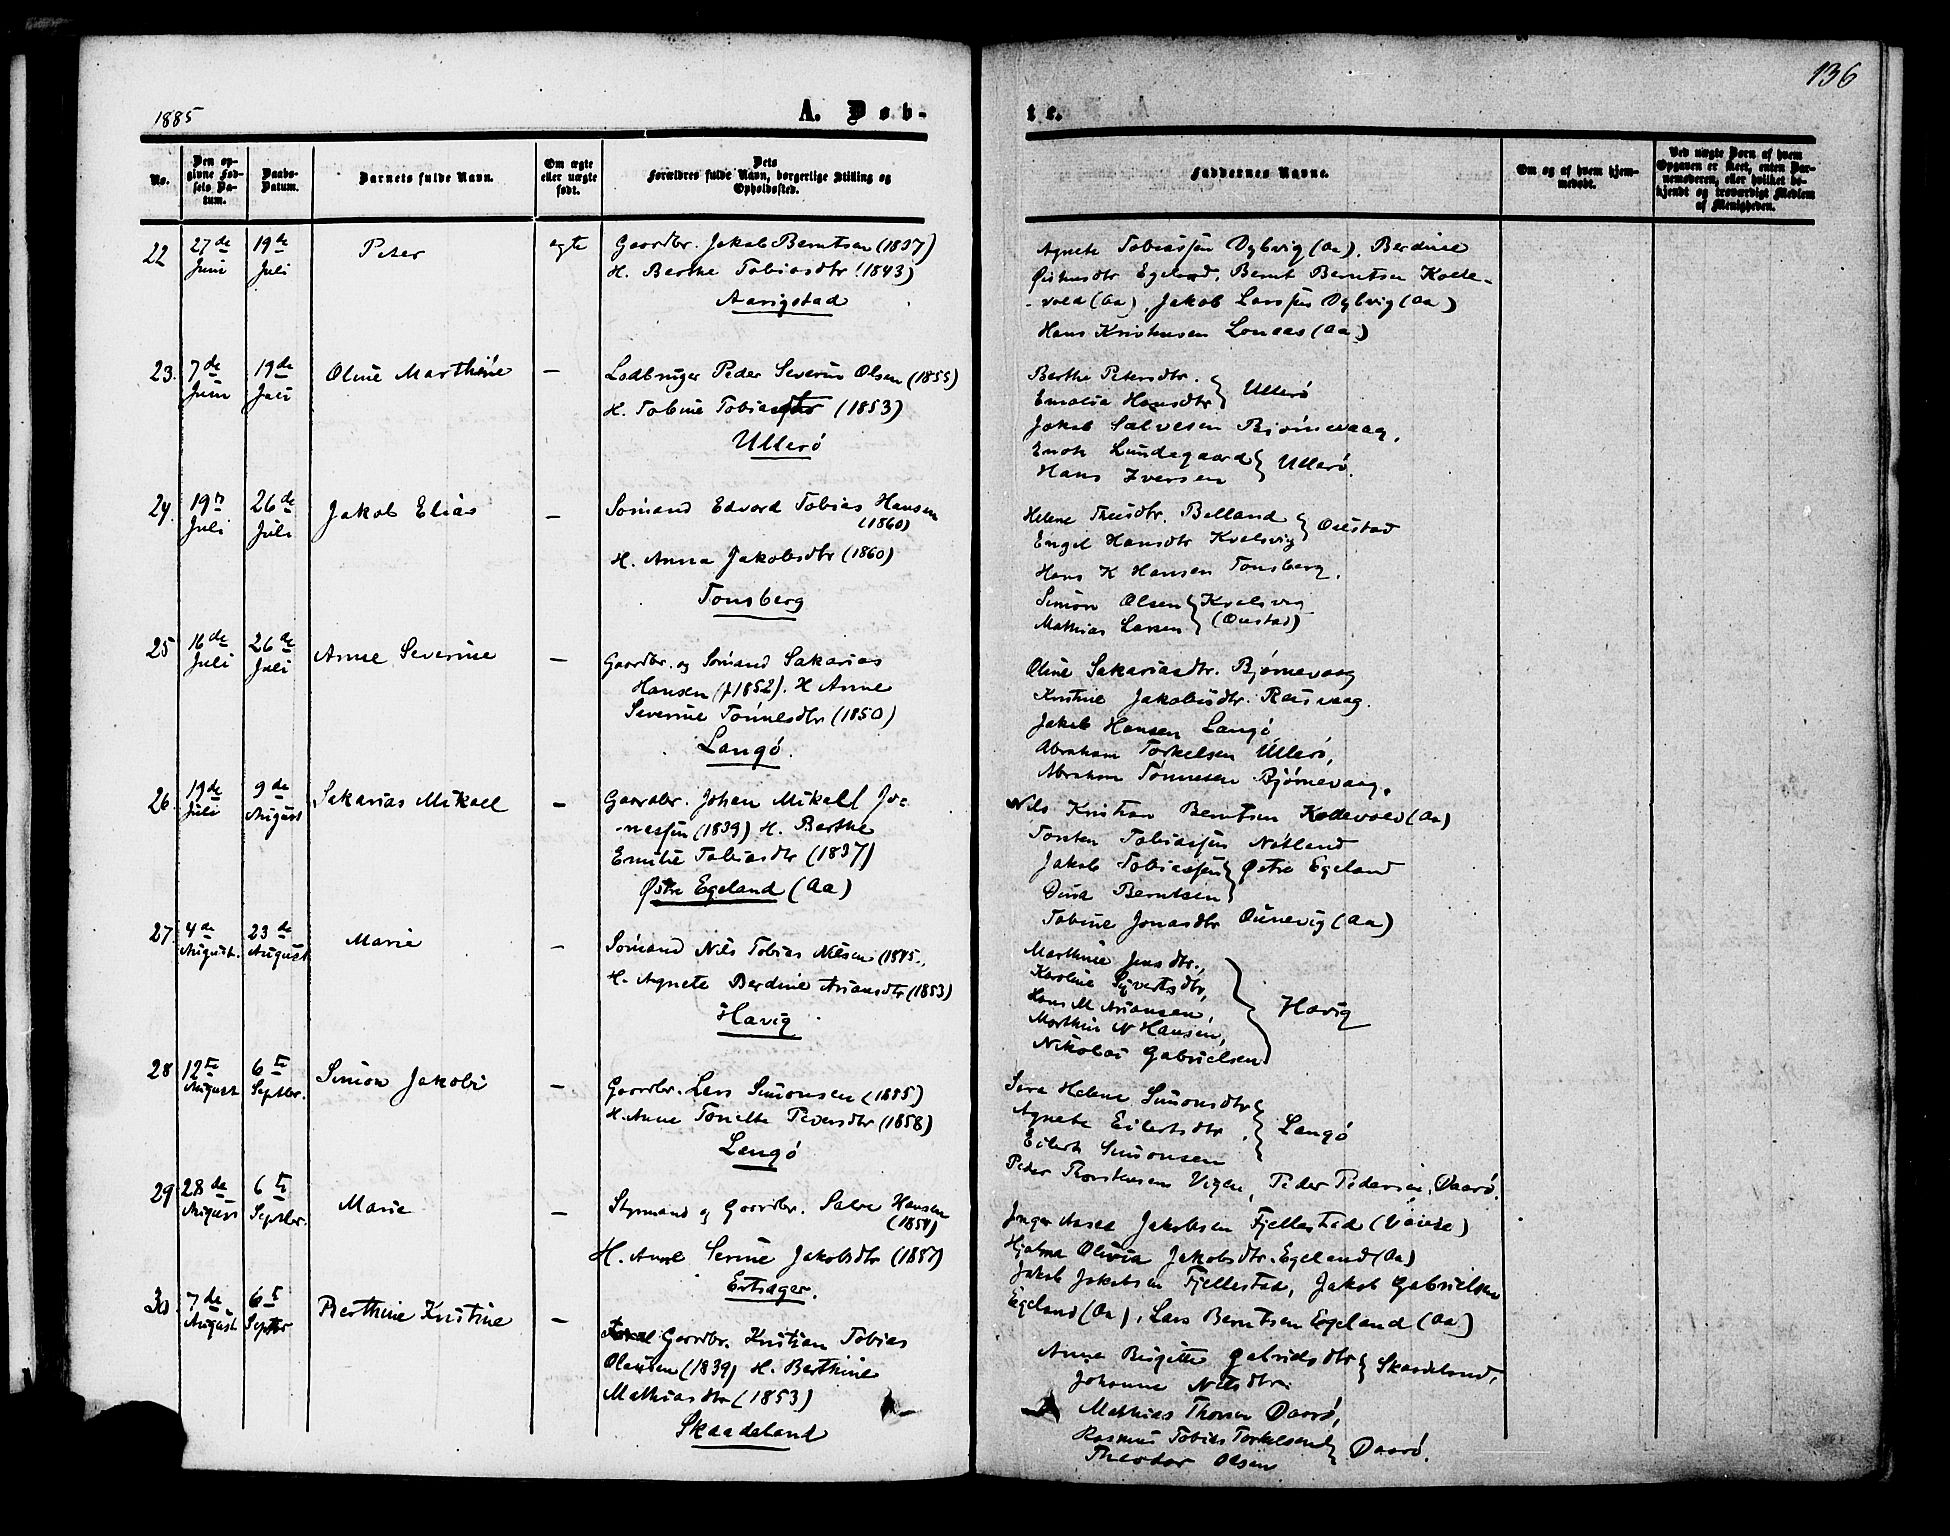 136
1885
A. Døb-
te.
No.
Den opgivne Fødsels Datum.
Daabs-Datum.
Barnets fulde Navn.
Om ægte eller uægte født.
Dets Forældres fulde Navn, borgerlige Stilling og Opholdssted.
Faddernes Navne.
Om og af hvem hjemmedøbt.
Ved uægte Børn af hvem Opgaven er skeet, enten Barnemoderen, eller hvilket bekjendt og troværdigt Medlem af Menigheden.
22 27de Juni 19de Juli Peter ægte
Gaardbr. Jakob Berntsen (1837)
H. Berthe Tobiasdtr (1843)
Aarigstad
Agnete Tobiassen Dybvig (Aa), Berdine
Egeland, Bernt Berntsen Kolle-
-vold (Aa), Jakob Larssen Dybvig (Aa)
Hans Kristensen Lonaas (Aa)
23. 7de Juni 19de Juli Oline Marthine —
Lodbruger Peder Severin Olsen (1855)
H. Tobine Tobiasdtr (1853)
Ullerø
Berthe Petersdtr.
Emalia Hansdtr } Ullerø
Jakob Salvesen Bjørnevaag,
Enok Lundegaard
Hans Iversen } Ullerø.
24. 19de Juli 26de Juli Jakob Elias —
Sømand Edvard Tobias Hansen
(1860)
H. Anna Jakobsdtr (1860)
Tonsberg
Helene Theisdtr. Belland
Engel Hansdtr Kvelsvig } Oustad
Hans K Hansen Tonsberg.
Simon Olsen } Kvelsvig
Mathias Larsen } (Oustad)
25 16de Juli 26de Juli Anne Severine —
Gaardbr. og Sømand Sakarias
Hansen (1852). H Anne
Severine Tønnesdtr (1850)
Langø.
Oline Sakariasdtr. Bjørnevaag
Kristine Jakobsdtr. Rausvaag.
Jakob Hansen Langø
Abraham Torkelsen Ullerø,
Abraham Tønnesen Bjørnevaag.
26. 19de Juli 9de August Sakarias Mikael —
Gaardbr. Johan Mikael Jo-
-nassen (1839) H. Berthe
Emilie Tobiasdtr (1837)
Østre Egeland (Aa)
Nils Kristian Berntsen Kollevold (Aa)
Torsten Tobiassen Nøkland
Jakob Tobiassen } Østre Egeland
Dina Berntsen }
Tobine Jonasdtr Ounevig (Aa)
27. 4de August. 23de August Marie —
Sømand Nils Tobias Nilsen (1845.
H. Agnete Berdine Ariansdtr (1853)
Havig
Marthine Jensdtr.,
Karoline Syvertsdtr,
Hans M Ariansen,
Marthin N Hansen,
Nikolai Gabrielsen } Havig
28 12te August 6te Septbr. Simon Jakobi —
Gaardbr. Lars Simonsen (1855)
H. Anne Tonette Pedersdtr (1858)
Langø
Sara Helene Simonsdtr
Agnete Eilertsdtr
Eilert Simonsen } Langø
Peder Thorstensen Vigen, Peder Pedersen, Daarø.
29. 28de August 6te Septbr. Marie —
Styrmand og Gaardbr. Salve Hansen
(1854)
H. Anne Serine Jakobsdtr (1857)
Ertsager.
Inger Aasea Jakobsen Fjellestad (Vaiese)
Hjalma Olivia Jakobsdtr. Egeland (Aa)
Jakob Jakobsen Fjellestad, Jakob Gabrielsen
Egeland (Aa), Lars Berntsen Egeland (Aa)
30. 7de August 6te Septbr Berthine Kristine —
Gaardbr. Kristian Tobias
Olausen (1839) H. Berthine
Mathiasdtr (1853)
Skaadeland
Anna Birgitte Gabrielsdtr } Skaadeland,
Johanne Nilsdtr.
Mathias Thorsen Daarø,
Rasmus Tobias Torkelsen } Daarø.
Theodor Olsen